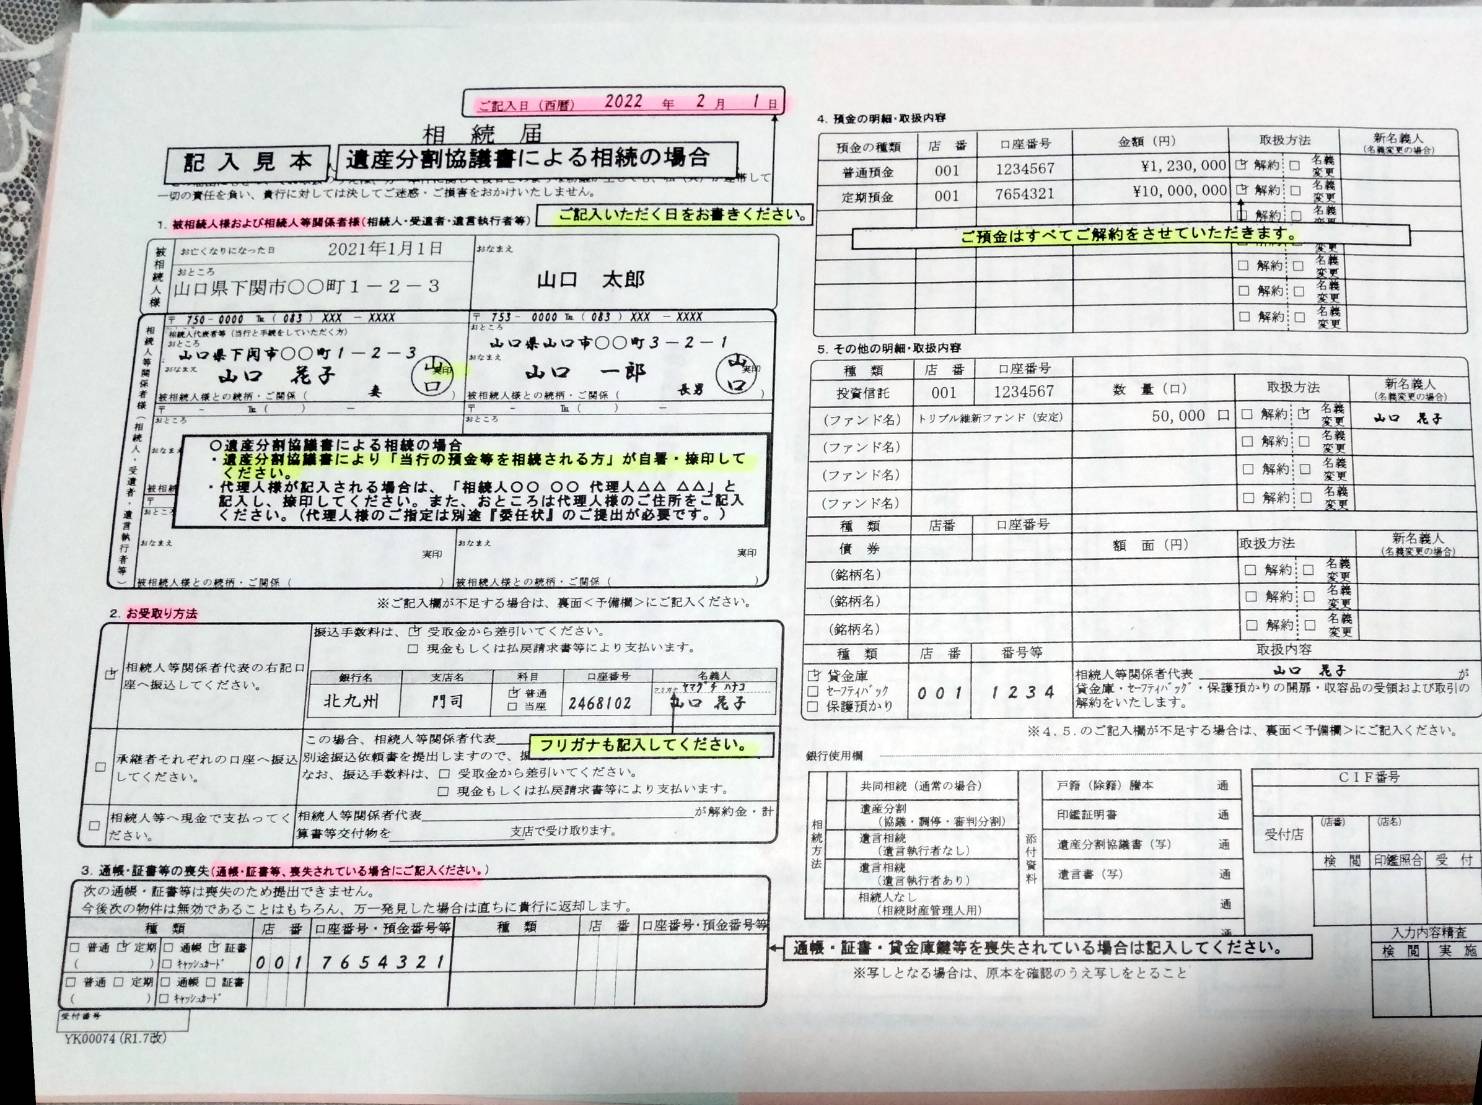 ご記入日(西暦) 2022 年 2 月 1 日
相 続 届
記入見本 遺産分割協議書による相続の場合
一切の責任を負い、貴行に対しては決してご迷惑・ご損害をおかけいたしません。
ご記入いただく日をお書きください。
1. 被相続人様および相続人等関係者様(相続人・受遺者・遺言執行者等)
被相続人様
お亡くなりになった日 2021年1月1日
おなまえ
山口 太郎
おところ
山口県下関市〇〇町1-2-3
相続人等関係者様(相続人・受遺者・遺言執行者等)
〒 750-0000 ℡ (083) XXX - XXXX
相続人代表者等(当行と手続をしていただく方)
おところ
山口県下関市〇〇町1-2-3
おなまえ
山口 花子
山口 実印
被相続人様との続柄・ご関係( 妻 )
〒 753-0000 ℡ (083) XXX - XXXX
おところ
山口県山口市〇〇町3-2-1
おなまえ
山口 一郎
山口 実印
被相続人様との続柄・ご関係( 長男 )
〒 - ℡ ( ) -
おところ
〒 - ℡ ( ) -
おところ
〇遺産分割協議書による相続の場合
・遺産分割協議書により「当行の預金等を相続される方」が自署・捺印して
ください。
・代理人様が記入される場合は、「相続人〇〇 〇〇 代理人△△ △△」と
記入し、捺印してください。また、おところは代理人様のご住所をご記入
ください。(代理人様のご指定は別途『委任状』のご提出が必要です。)
おなまえ 実印
被相続人様との続柄・ご関係( )
おなまえ 実印
被相続人様との続柄・ご関係( )
※ご記入欄が不足する場合は、裏面<予備欄>にご記入ください。
2. お受取り方法
☑ 相続人等関係者代表の右記口
座へ振込してください。
振込手数料は、☑ 受取金から差引いてください。
□ 現金もしくは払戻請求書等により支払います。
銀行名 支店名 科目 口座番号 名義人
北九州 門司 ☑ 普通 □ 当座 2468102 フリガナ ヤマグチ ハナコ
山口 花子
フリガナも記入してください。
□ 承継者それぞれの口座へ振込
してください。
この場合、相続人等関係者代表
別途振込依頼書を提出しますので、振
なお、振込手数料は、□ 受取金から差引いてください。
□ 現金もしくは払戻請求書等により支払います。
□ 相続人等へ現金で支払ってく
ださい。
相続人等関係者代表 が解約金・計
算書等交付物を 支店で受け取ります。
3. 通帳・証書等の喪失(通帳・証書等、喪失されている場合にご記入ください。)
次の通帳・証書等は喪失のため提出できません。
今後次の物件は無効であることはもちろん、万一発見した場合は直ちに貴行に返却します。
種 類 店 番 口座番号・預金番号等 種 類 店 番 口座番号・預金番号等
□ 普通 ☑ 定期 □ 通帳 ☑ 証書
( ) □ キャッシュカード 001 7654321
□ 普通 □ 定期 □ 通帳 □ 証書
( ) □ キャッシュカード
受付番号
YK00074 (R1.7改)
4. 預金の明細・取扱内容
預金の種類 店 番 口座番号 金額(円) 取扱方法 新名義人
(名義変更の場合)
普通預金 001 1234567 ¥1,230,000 ☑ 解約 □ 名義変更
定期預金 001 7654321 ¥10,000,000 ☑ 解約 □ 名義変更
□ 解約 □ 名義
ご預金はすべてご解約をさせていただきます。
変更
□ 解約 □ 名義変更
□ 解約 □ 名義変更
□ 解約 □ 名義変更
5. その他の明細・取扱内容
種 類 店 番 口座番号 数 量(口) 取扱方法 新名義人
(名義変更の場合)
投資信託 001 1234567
(ファンド名) トリプル維新ファンド(安定) 50,000 口 □ 解約 ☑ 名義変更 山口 花子
(ファンド名) □ 解約 □ 名義変更
(ファンド名) □ 解約 □ 名義変更
(ファンド名) □ 解約 □ 名義変更
種 類 店番 口座番号 額 面(円) 取扱方法 新名義人
(名義変更の場合)
債 券
(銘柄名) □ 解約 □ 名義変更
(銘柄名) □ 解約 □ 名義変更
(銘柄名) □ 解約 □ 名義変更
種 類 店 番 番号等 取扱内容
☑ 貸金庫
□ セーフティバック
□ 保護預かり
001 1234
相続人等関係者代表 山口 花子 が
貸金庫・セーフティバッグ・保護預かりの開扉・収容品の受領および取引の
解約をいたします。
※4.5.のご記入欄が不足する場合は、裏面<予備欄>にご記入ください。
銀行使用欄
相続方法
共同相続(通常の場合)
遺産分割
(協議・調停・審判分割)
遺言相続
(遺言執行者なし)
遺言相続
(遺言執行者あり)
相続人なし
(相続財産管理人用)
添付資料
戸籍(除籍)謄本 通
印鑑証明書 通
遺産分割協議書(写) 通
遺言書(写) 通
通
通帳・証書・貸金庫鍵等を喪失されている場合は記入してください。
※写しとなる場合は、原本を確認のうえ写しをとること
CIF番号
受付店 (店番) (店名)
検 閲 印鑑照合 受 付
入力内容精査
検 閲 実 施